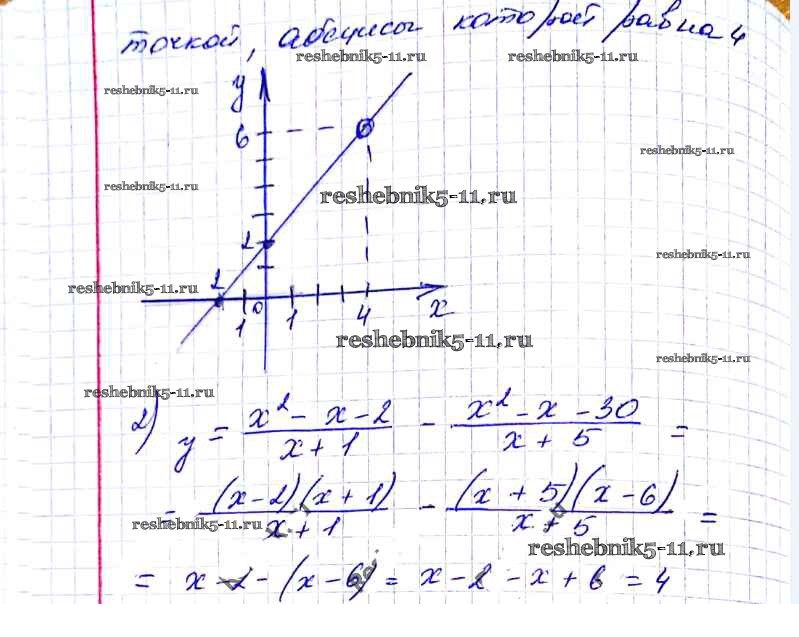 точкой, абсциссы которой равна 4
reshebnik5-11.ru reshebnik5-11.ru
reshebnik5-11.ru
y
6
reshebnik5-11.ru
reshebnik5-11.ru
reshebnik5-11.ru
2
reshebnik5-11.ru
reshebnik5-11.ru
2
1 0 1 4 x
reshebnik5-11.ru
reshebnik5-11.ru
reshebnik5-11.ru
2) y = (x² - x - 2)/(x + 1) - (x² - x - 30)/(x + 5) =
= ((x-2)(x+1))/(x+1) - ((x+5)(x-6))/(x+5) =
reshebnik5-11.ru
reshebnik5-11.ru
= x - 2 - (x - 6) = x - 2 - x + 6 = 4